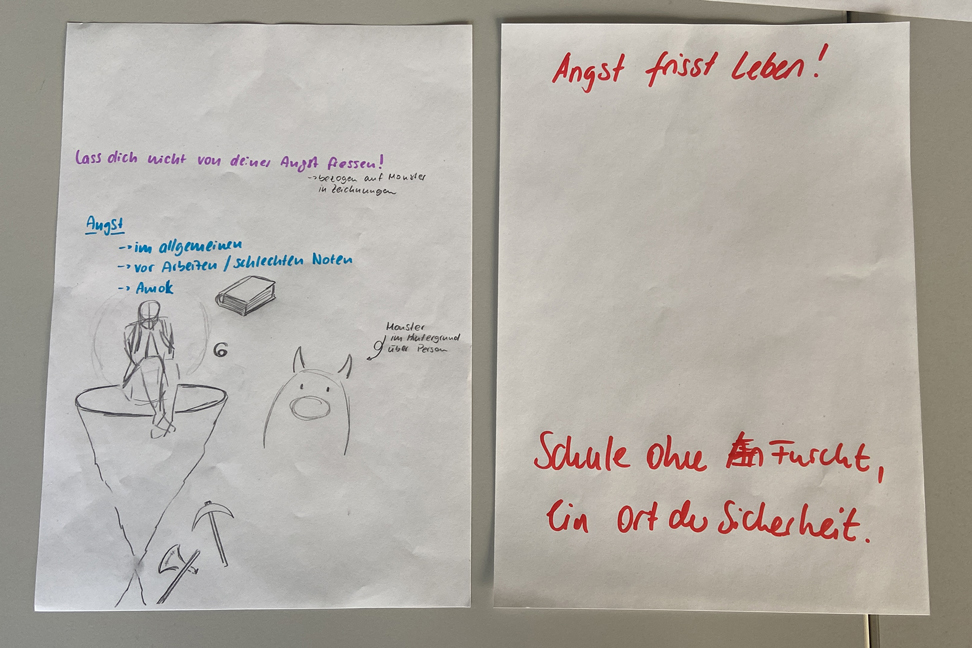 Lass dich nicht von deiner Angst fressen!
-> bezogen auf Monster
in Zeichnungen
Angst
-> im allgemeinen
-> vor Arbeiten / schlechten Noten
-> Amok
6
Monster
im Hintergrund
über Person
Angst frisst Leben!
Schule ohne Furcht,
Ein Ort der Sicherheit.